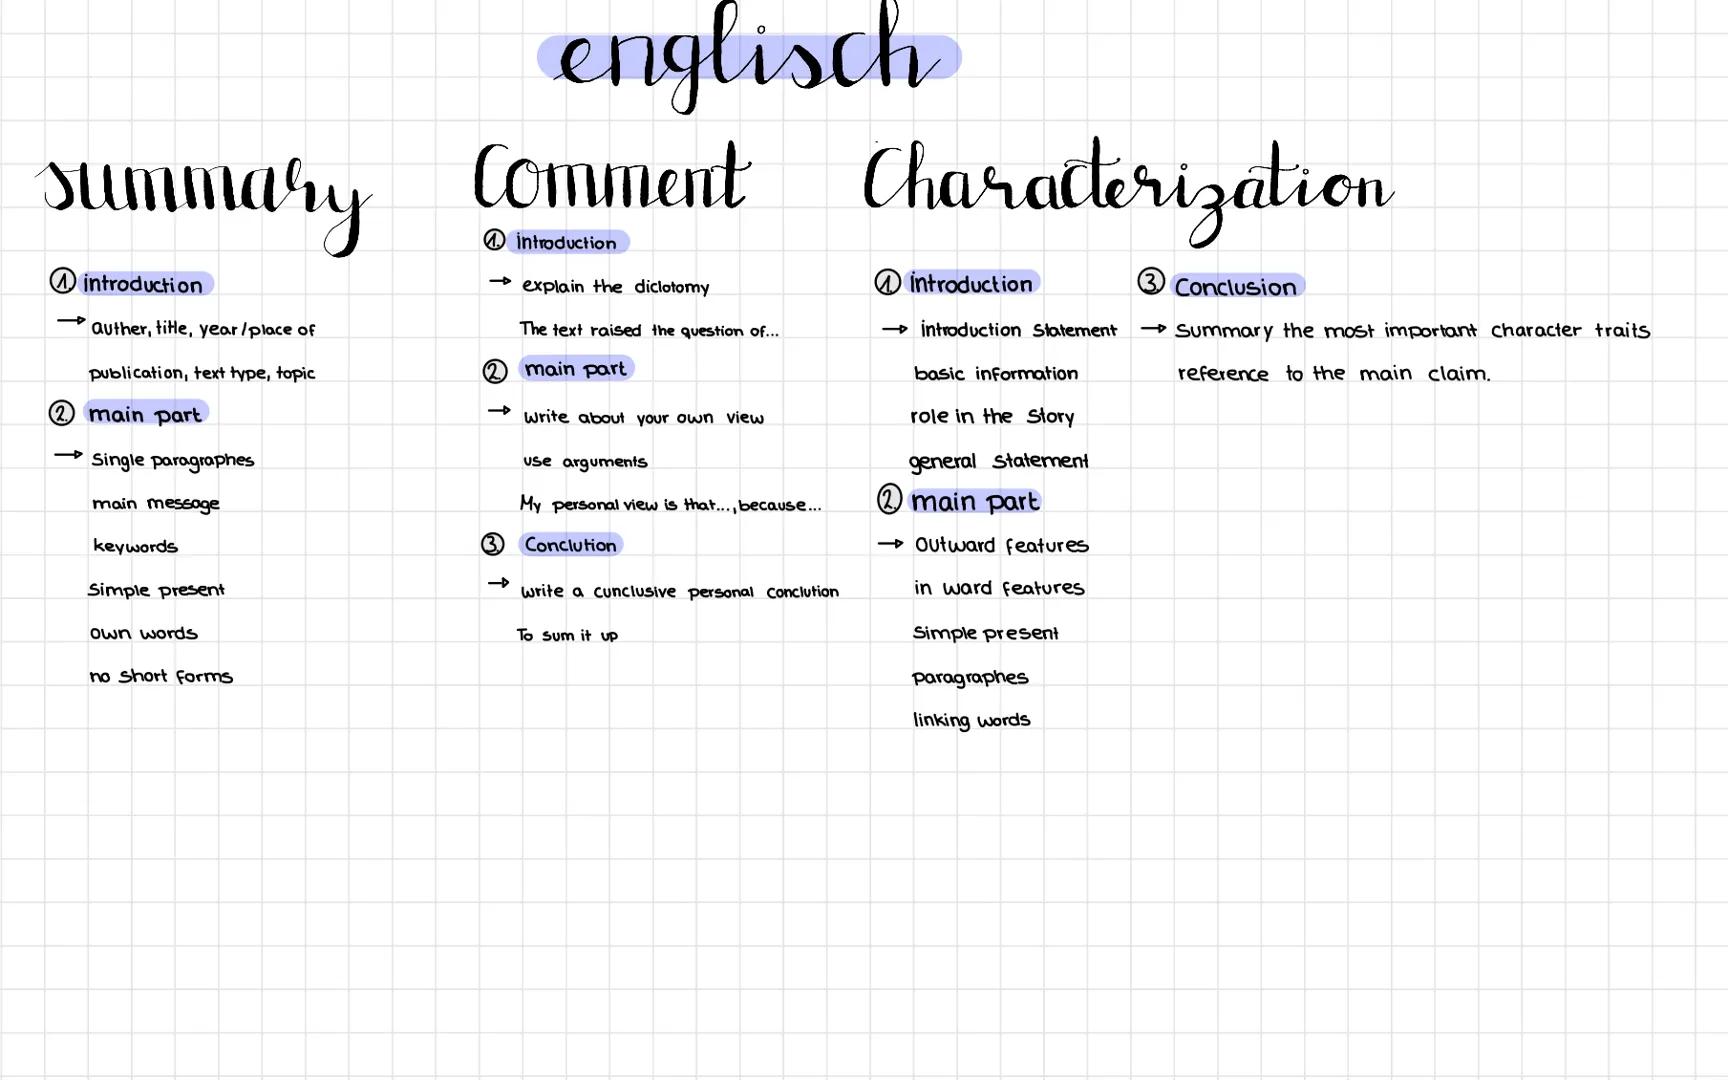 englisch
summary
① introduction
→ auther, title, year/place of
publication, text type, topic
② main part
→ Single paragraphes
main message
keywords
Simple present
own words
no short forms
Comment
① introduction
→ explain the diclotomy
The text raised the question of...
② main part
→ write about your own view
use arguments
My personal view is that..., because...
③ Conclution
→ write a cunclusive personal conclution
To sum it up
Characterization
① introduction
→ introduction statement
basic information
role in the story
general statement
② main part
→ outward features
in ward features
simple present
paragraphes
linking words
③ Conclusion
→ Summary the most important character traits
reference to the main claim.